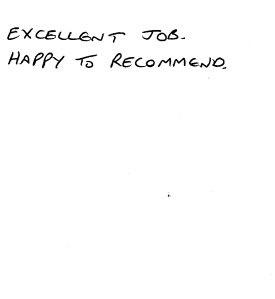 EXCELLENT JOB.
HAPPY TO RECOMMEND.